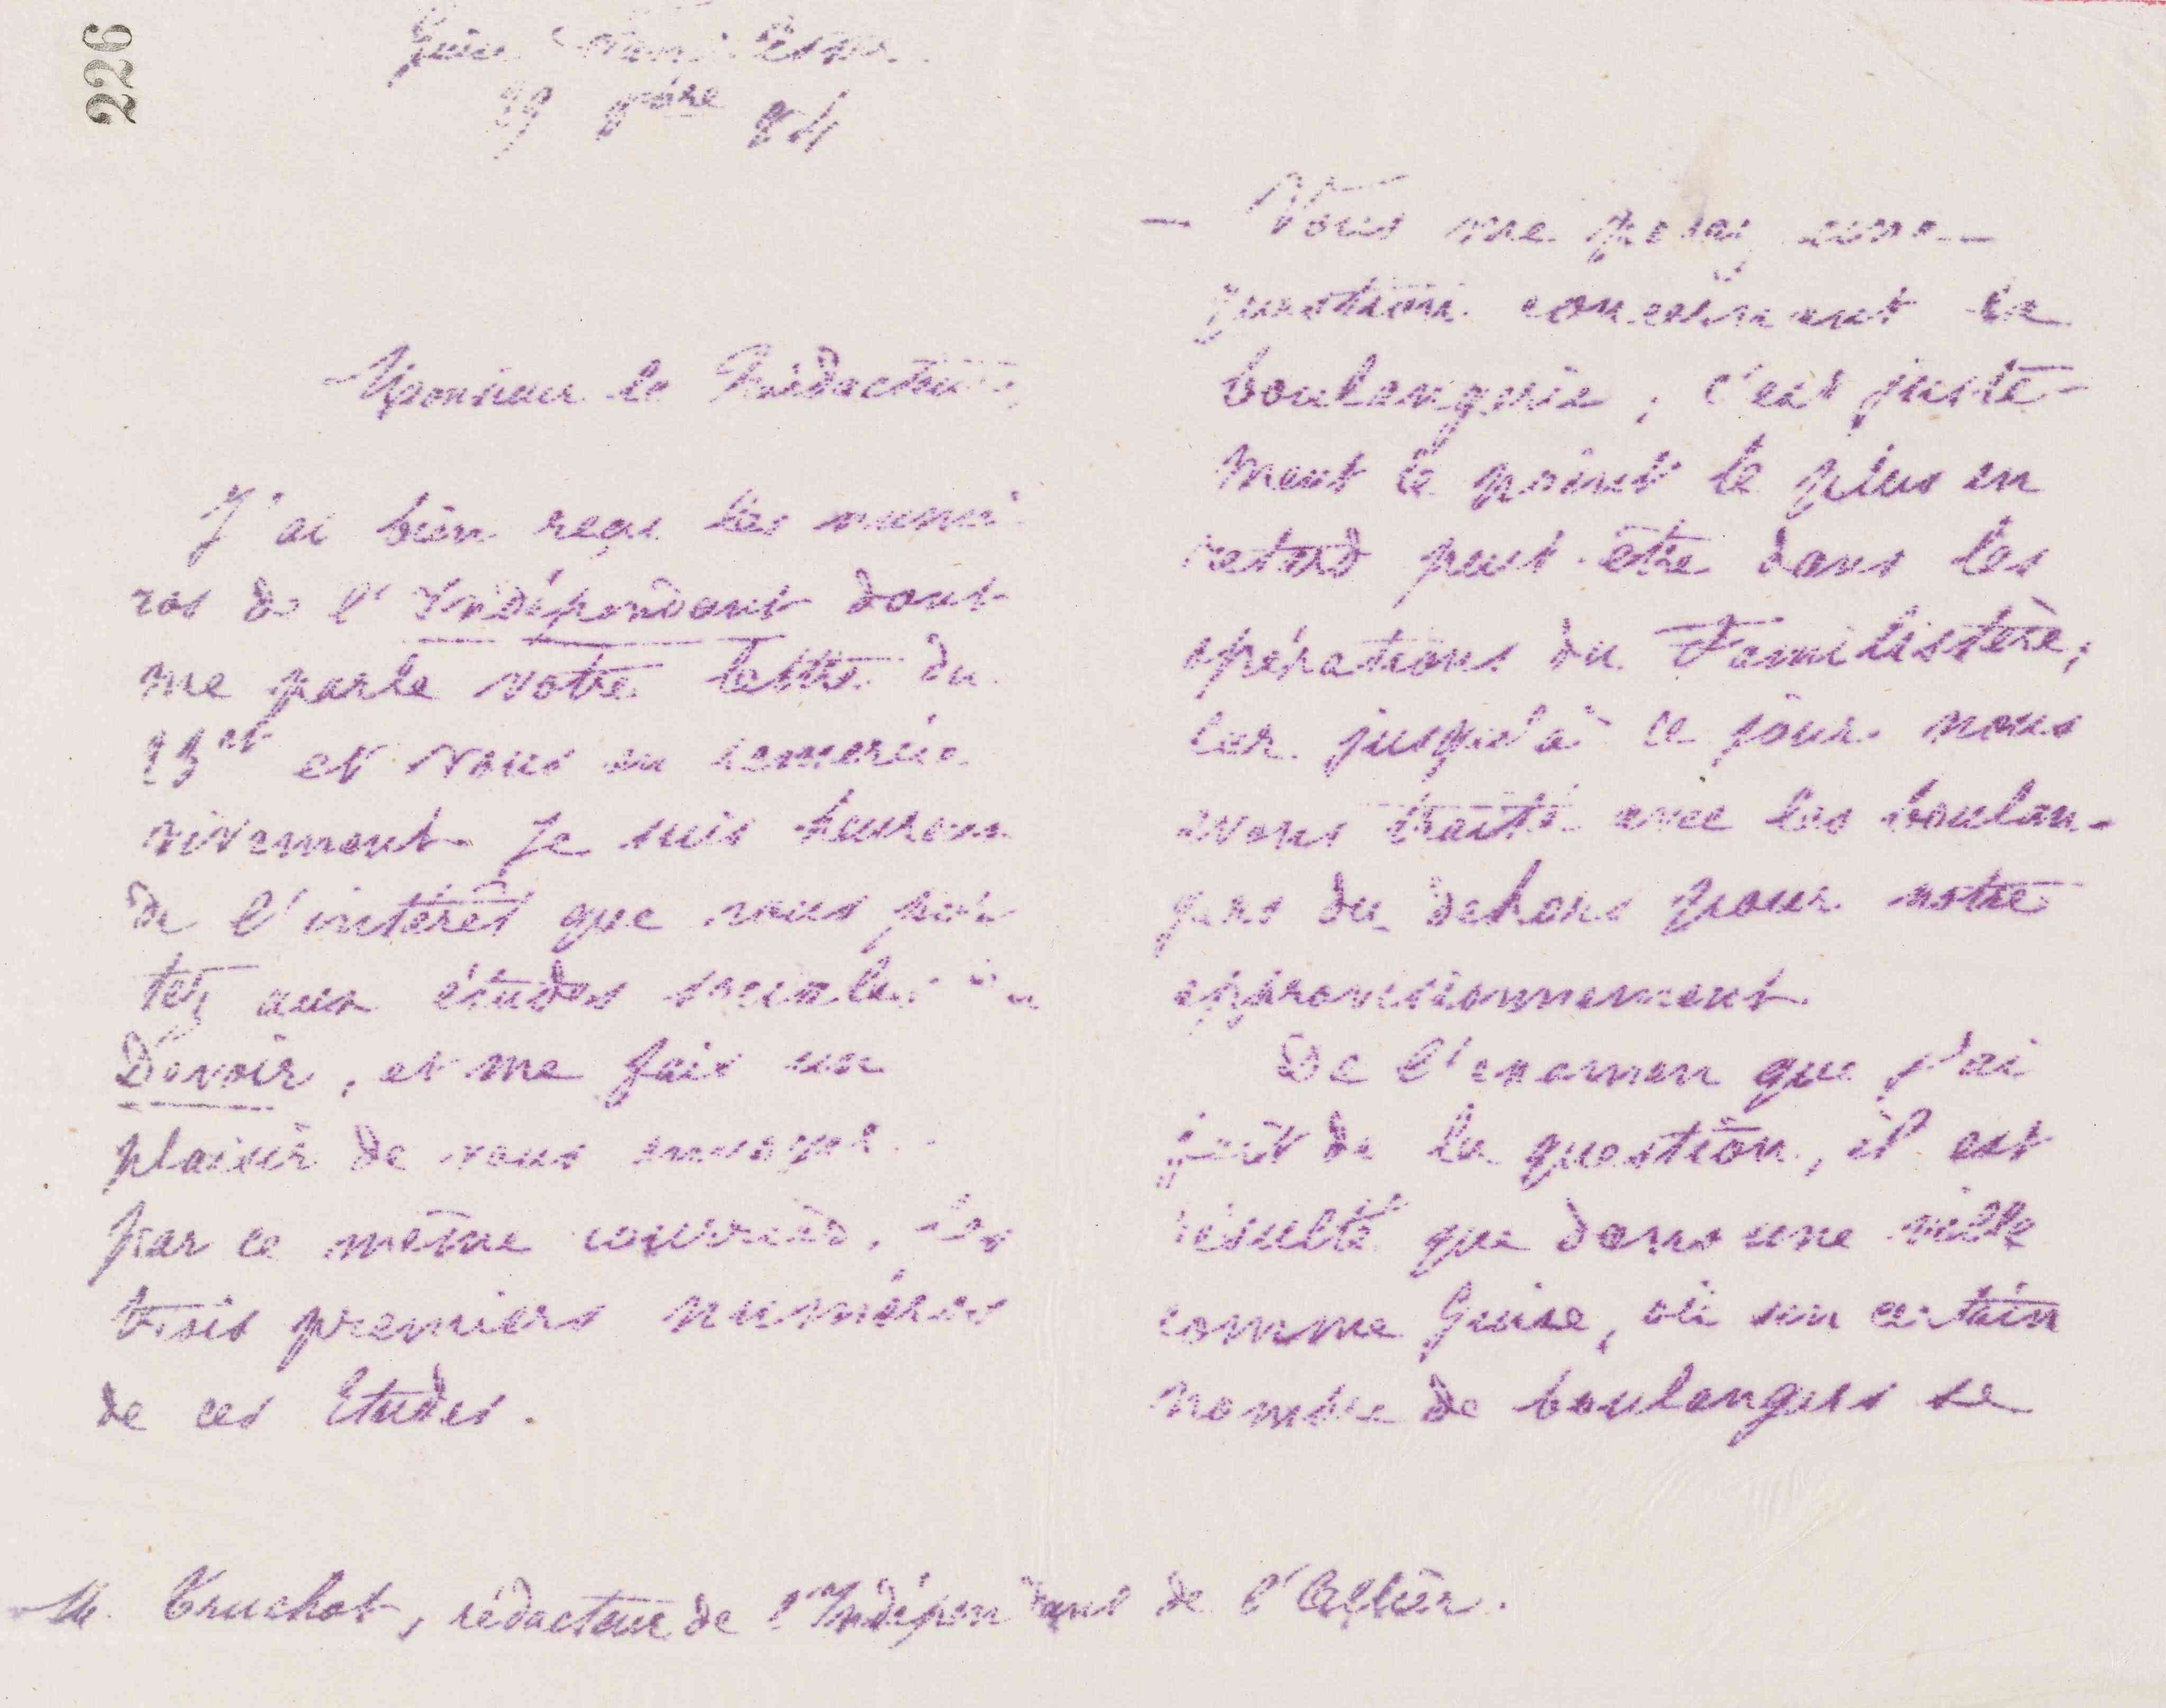 226
Guise Familistère
29 9bre 84
Monsieur le Rédacteur,
J'ai bien reçu les numé-
ros de l'Indépendant dont
me parle votre lettre du
23 ct et vous en remercie
vivement. Je suis heureux
de l'intérêt que vous por-
tez aux études sociales du
Devoir, et me fais un
plaisir de vous envoyer
par ce même courrier, les
trois premiers numéros
de ces Etudes.
— Vous me posez une —
question concernant la
boulangerie ; c'est juste-
ment le point le plus en
retard peut-être dans les
opérations du Familistère ;
car jusqu'à ce jour nous
avons traité avec les boulan-
gers du dehors pour notre
approvisionnement.
De l'examen que j'ai
fait de la question, il est
résulté que dans une ville
comme Guise, où un certain
nombre de boulangers se
M. Truchot, rédacteur de l'Indépendant de l'Allier.